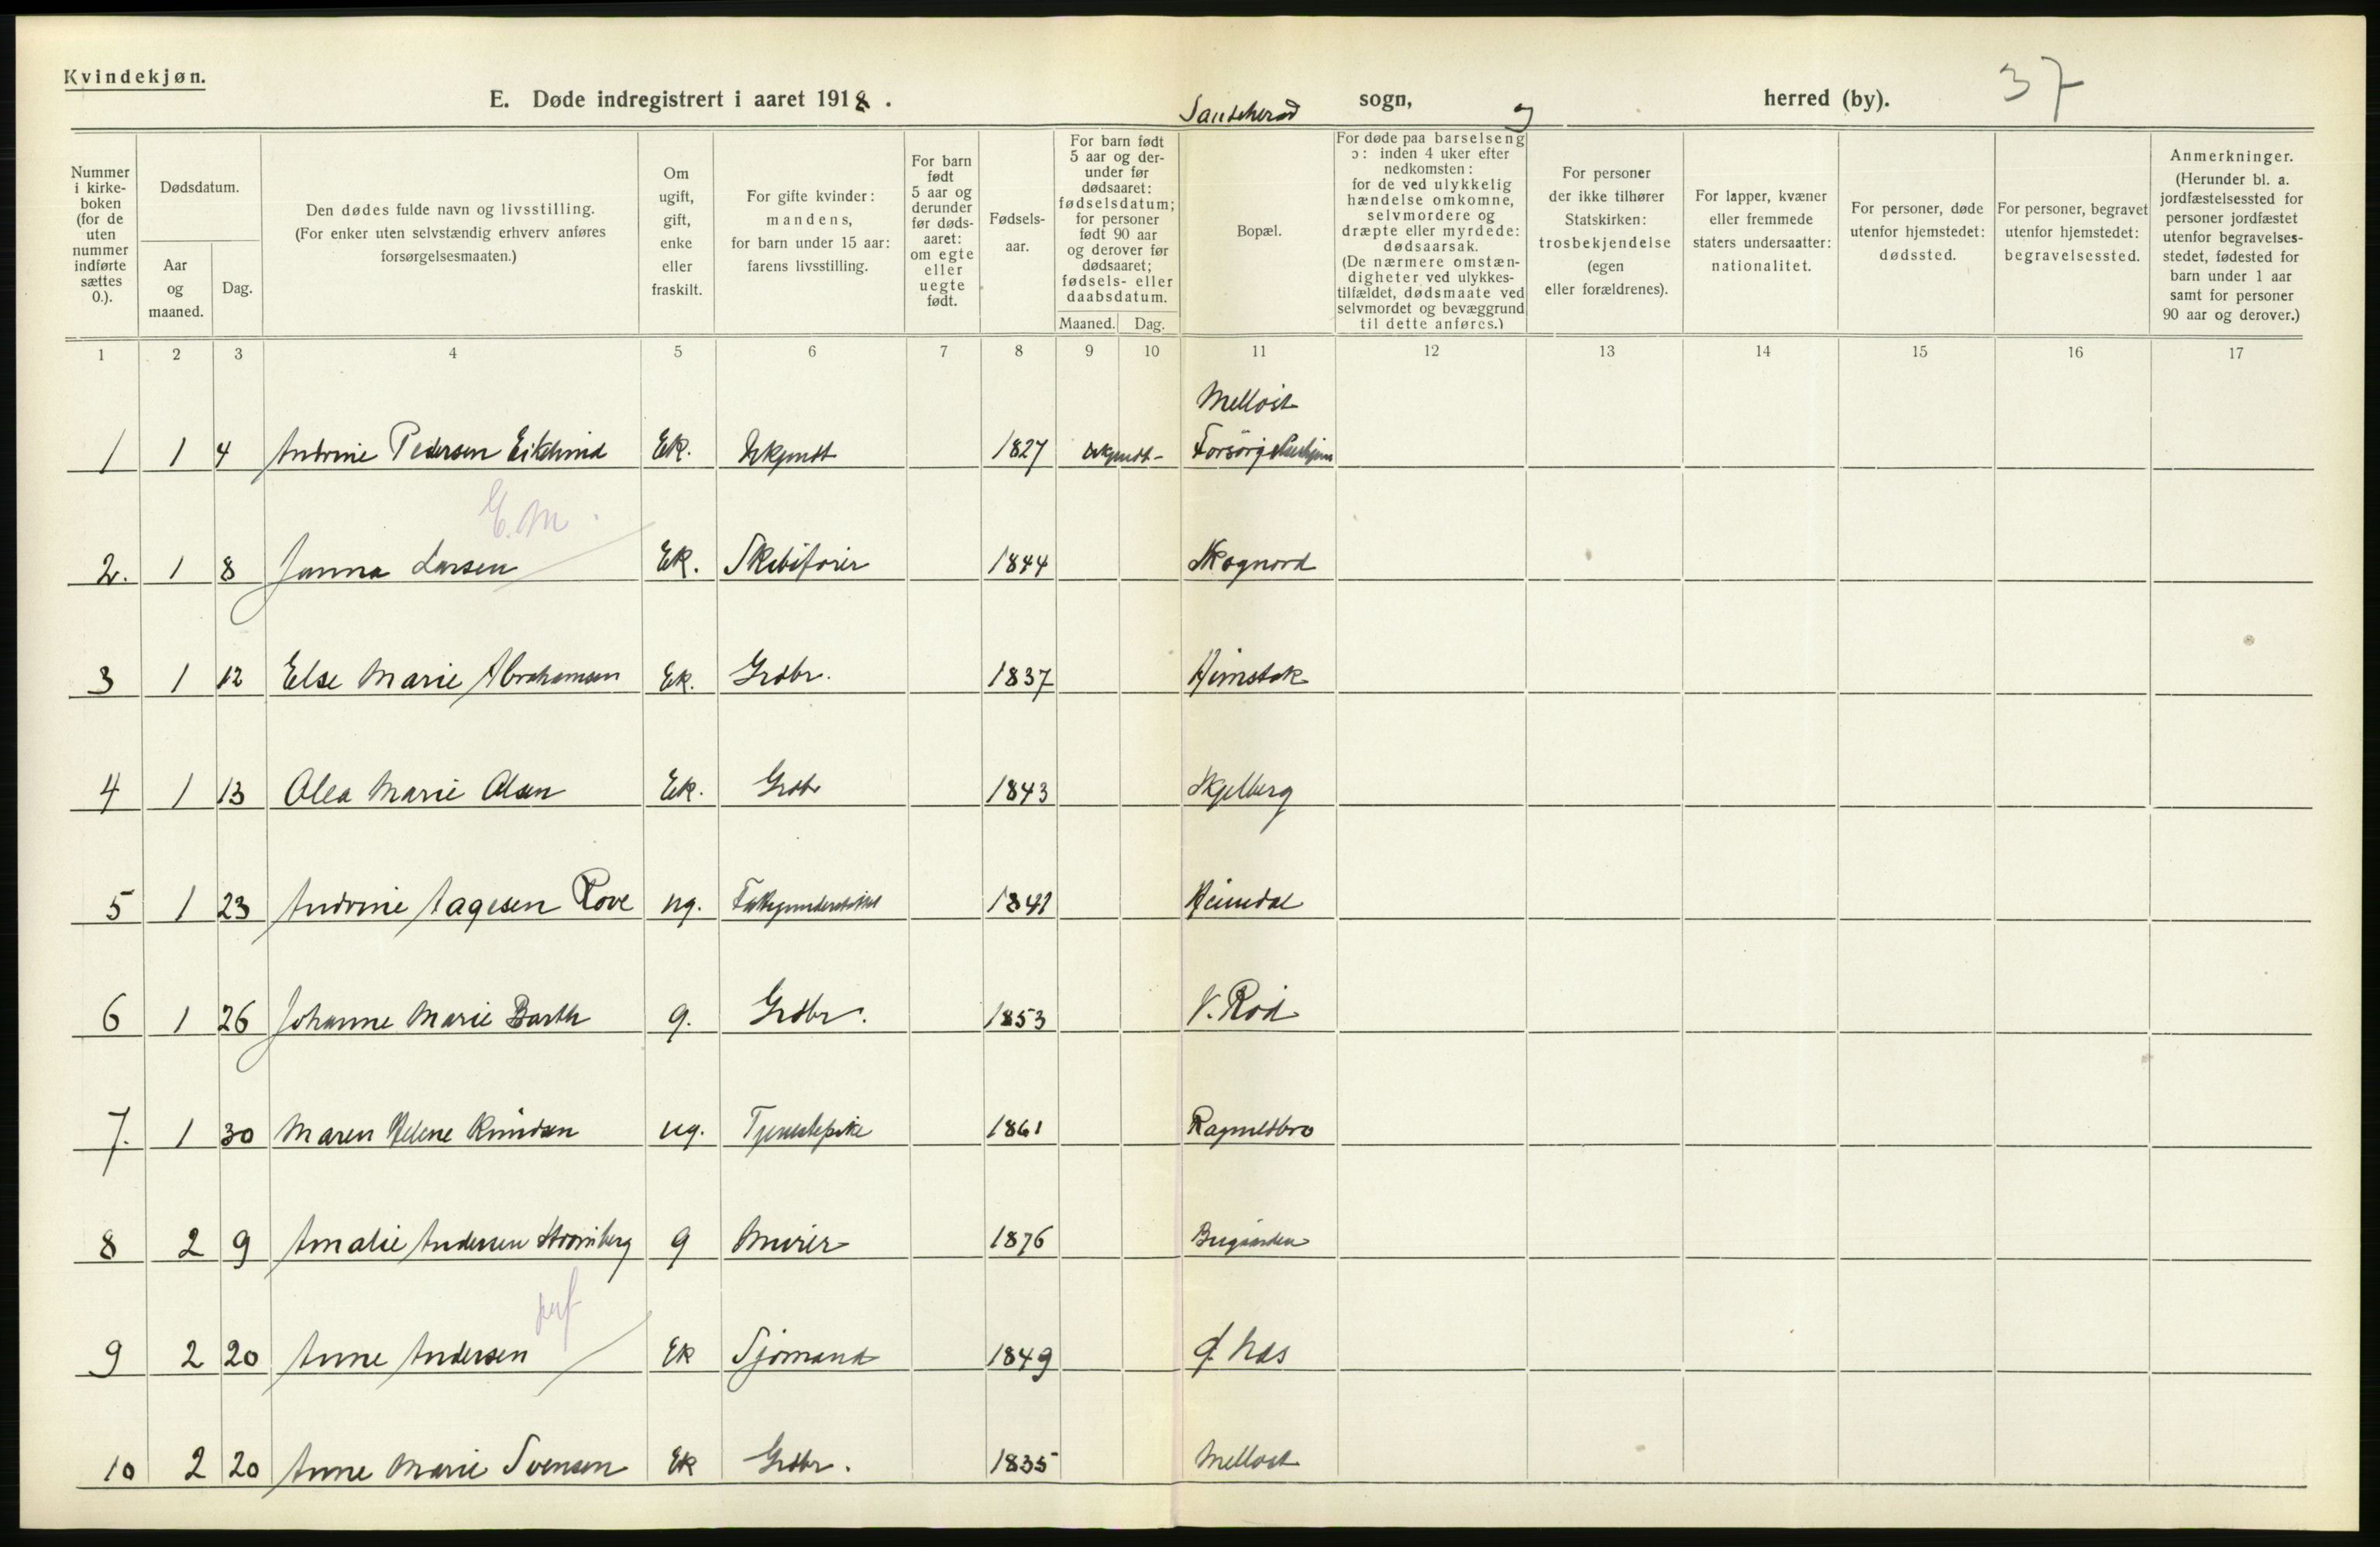 Kvindekjøn.
E. Døde indregistrert i aaret 1918. Sandeherad sogn, herred (by). 37
Nummer i kirke-boken (for de uten nummer indførte sættes 0.).
Dødsdatum.
Aar og maaned.
Dag.
Den dødes fulde navn og livsstilling.
(For enker uten selvstændig erhverv anføres forsørgelsesmaaten.)
Om ugift, gift, enke eller fraskilt.
For gifte kvinder: mandens, for barn under 15 aar: farens livsstilling.
For barn født 5 aar og derunder før døds-aaret: om egte eller uegte født.
Fødsels-aar.
For barn født 5 aar og der-under før dødsaaret: fødselsdatum; for personer født 90 aar og derover før dødsaaret; fødsels- eller daabsdatum.
Maaned. Dag.
Bopæl.
For døde paa barselseng ɔ: inden 4 uker efter nedkomsten: for de ved ulykkelig hændelse omkomne, selvmordere og dræpte eller myrdede: dødsaarsak. (De nærmere omstæn-digheter ved ulykkes-tilfældet, dødsmaate ved selvmordet og bevæggrund til dette anføres.)
For personer der ikke tilhører Statskirken: trosbekjendelse (egen eller forældrenes).
For lapper, kvæner eller fremmede staters undersaatter: nationalitet.
For personer, døde utenfor hjemstedet: dødssted.
For personer, begravet utenfor hjemstedet: begravelsessted.
Anmerkninger. (Herunder bl. a. jordfæstelsessted for personer jordfæstet utenfor begravelses-stedet, fødested for barn under 1 aar samt for personer 90 aar og derover.)
1 2 3 4 5 6 7 8 9 10 11 12 13 14 15 16 17
Melløst
1 1 4 Andrine Pedersen Eikelund Ek. Ukjendt 1827 Ukjendt Forsørgelseshjem
E. M.
2. 1 8 Janna Larsen Ek. Skibsfører 1844 Skagnord
3 1 12 Else Marie Abrahamsen Ek. Grdbr. 1837 Himstok
4 1 13 Olea Marie Olsen Ek. Grdbr 1843 Skjelberg
5 1 23 Andrine Aagesen Rove ug. Fattigunderstøttet 1841 Heimdal
6 1 26 Johanne Marie Barth g. Grdbr. 1853 V. Rød
7. 1 30 Maren Helene Knudsen ug. Tjenestepike 1861 Ragnildbro
8 2 9 Amalie Andersen Strømberg g Murer 1876 Bugaarden
9 2 20 Anne Andersen Ek Sjømand 1849 Nes
10 2 20 Anne Marie Svensen Ek Grdbr. 1835 Melløst